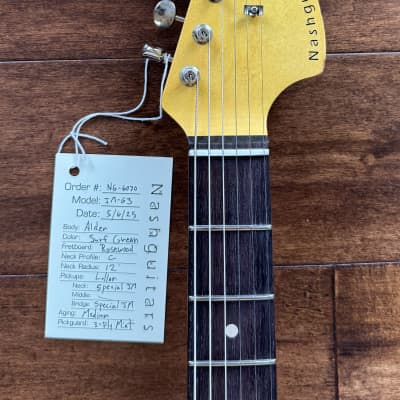 Nashguitars
Order #: NG-6070
Model: JM-63
Date: 5/6/25
Body: Alder
Color: Surf Green
Fretboard: Rosewood
Neck Profile: C
Neck Radius: 12
Pickups: Lollar
Neck: Special JM
Middle:
Bridge: Special JM
Aging: Medium
Pickguard: 3-Ply Mint
Nashgu